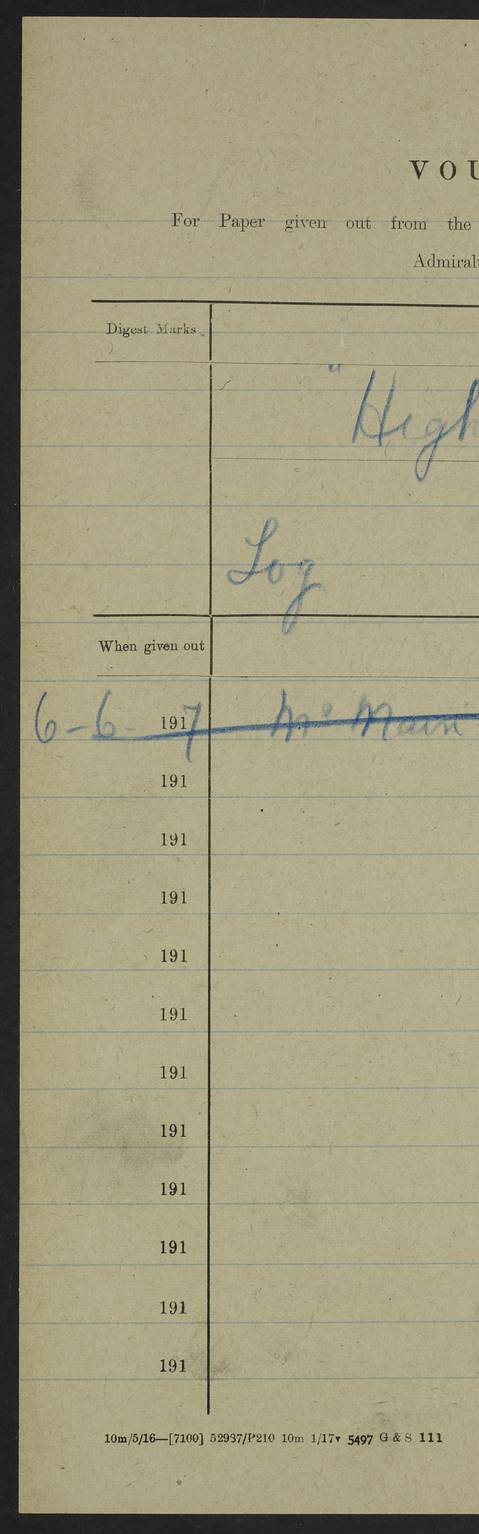 VOU
For Paper given out from the
Admiral
Digest Marks.
" High
Log
When given out
6-6- 1917 Mr Main
191
191
191
191
191
191
191
191
191
191
191
10m/5/16—[7100] 52937/P210 10m 1/17 5497 G & S 111